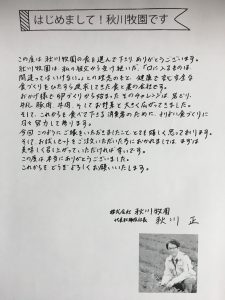 はじめまして！秋川牧園です
この度は秋川牧園の食を選んで下さりありがとうございます。
秋川牧園は、私の祖父から受け継いだ、「口に入るものは
間違ってはいけない」との理念のもと、健康で安心安全な
食づくりをひたすら追求してきた食と農の会社です。
おかげ様で卵づくりから始まったそのチャレンジは、若どり、
牛乳、豚肉、牛肉、そしてお野菜と大きく広がってきました。
そして、これからも食べて下さる消費者のために、よりよい食づくりに
日々努力して参ります。
今回このようにご縁をいただきましたこと、とても嬉しく思っております。
そして、お試しセットをご注文いただいた方におかれましては、まずは
美味しく召し上がっていただければ幸いです。
この度は本当にありがとうございました。
これからもどうぞよろしくお願いいたします。
株式会社 秋川牧園
代表取締役社長 秋川 正